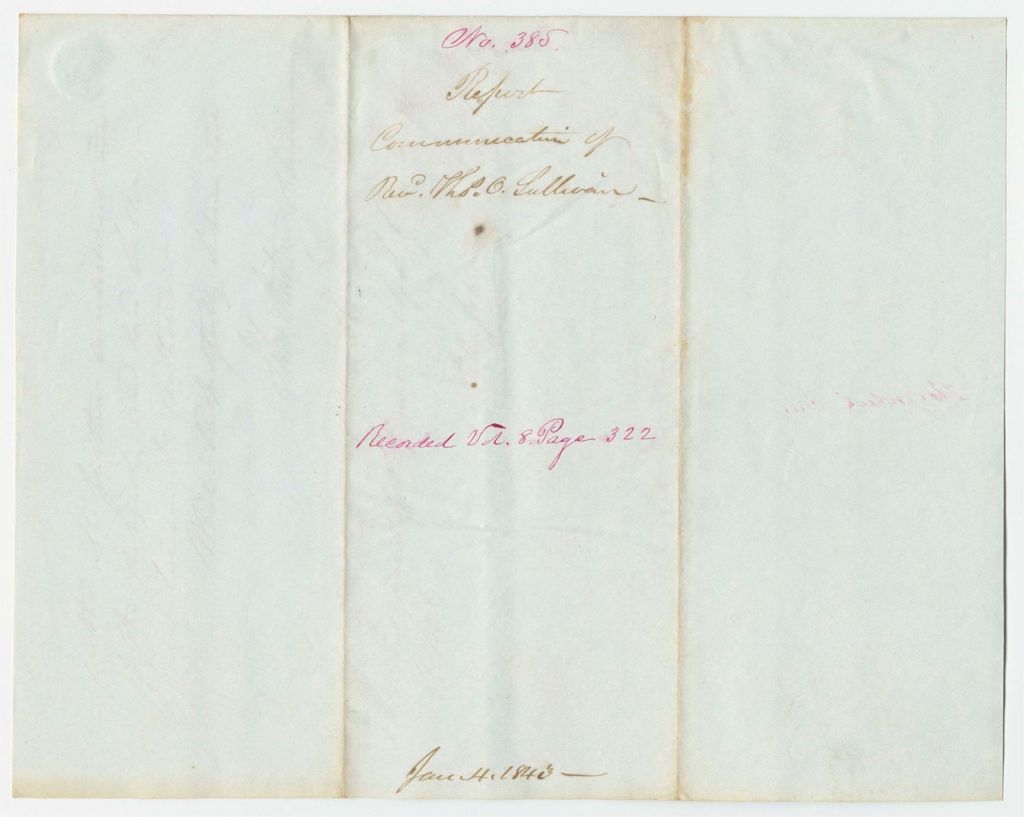 No. 385.
Report
Communication of
Revd. Thos. O. Sullivan
Recorded Vol. 8. Page 322
Jan. 4. 1843